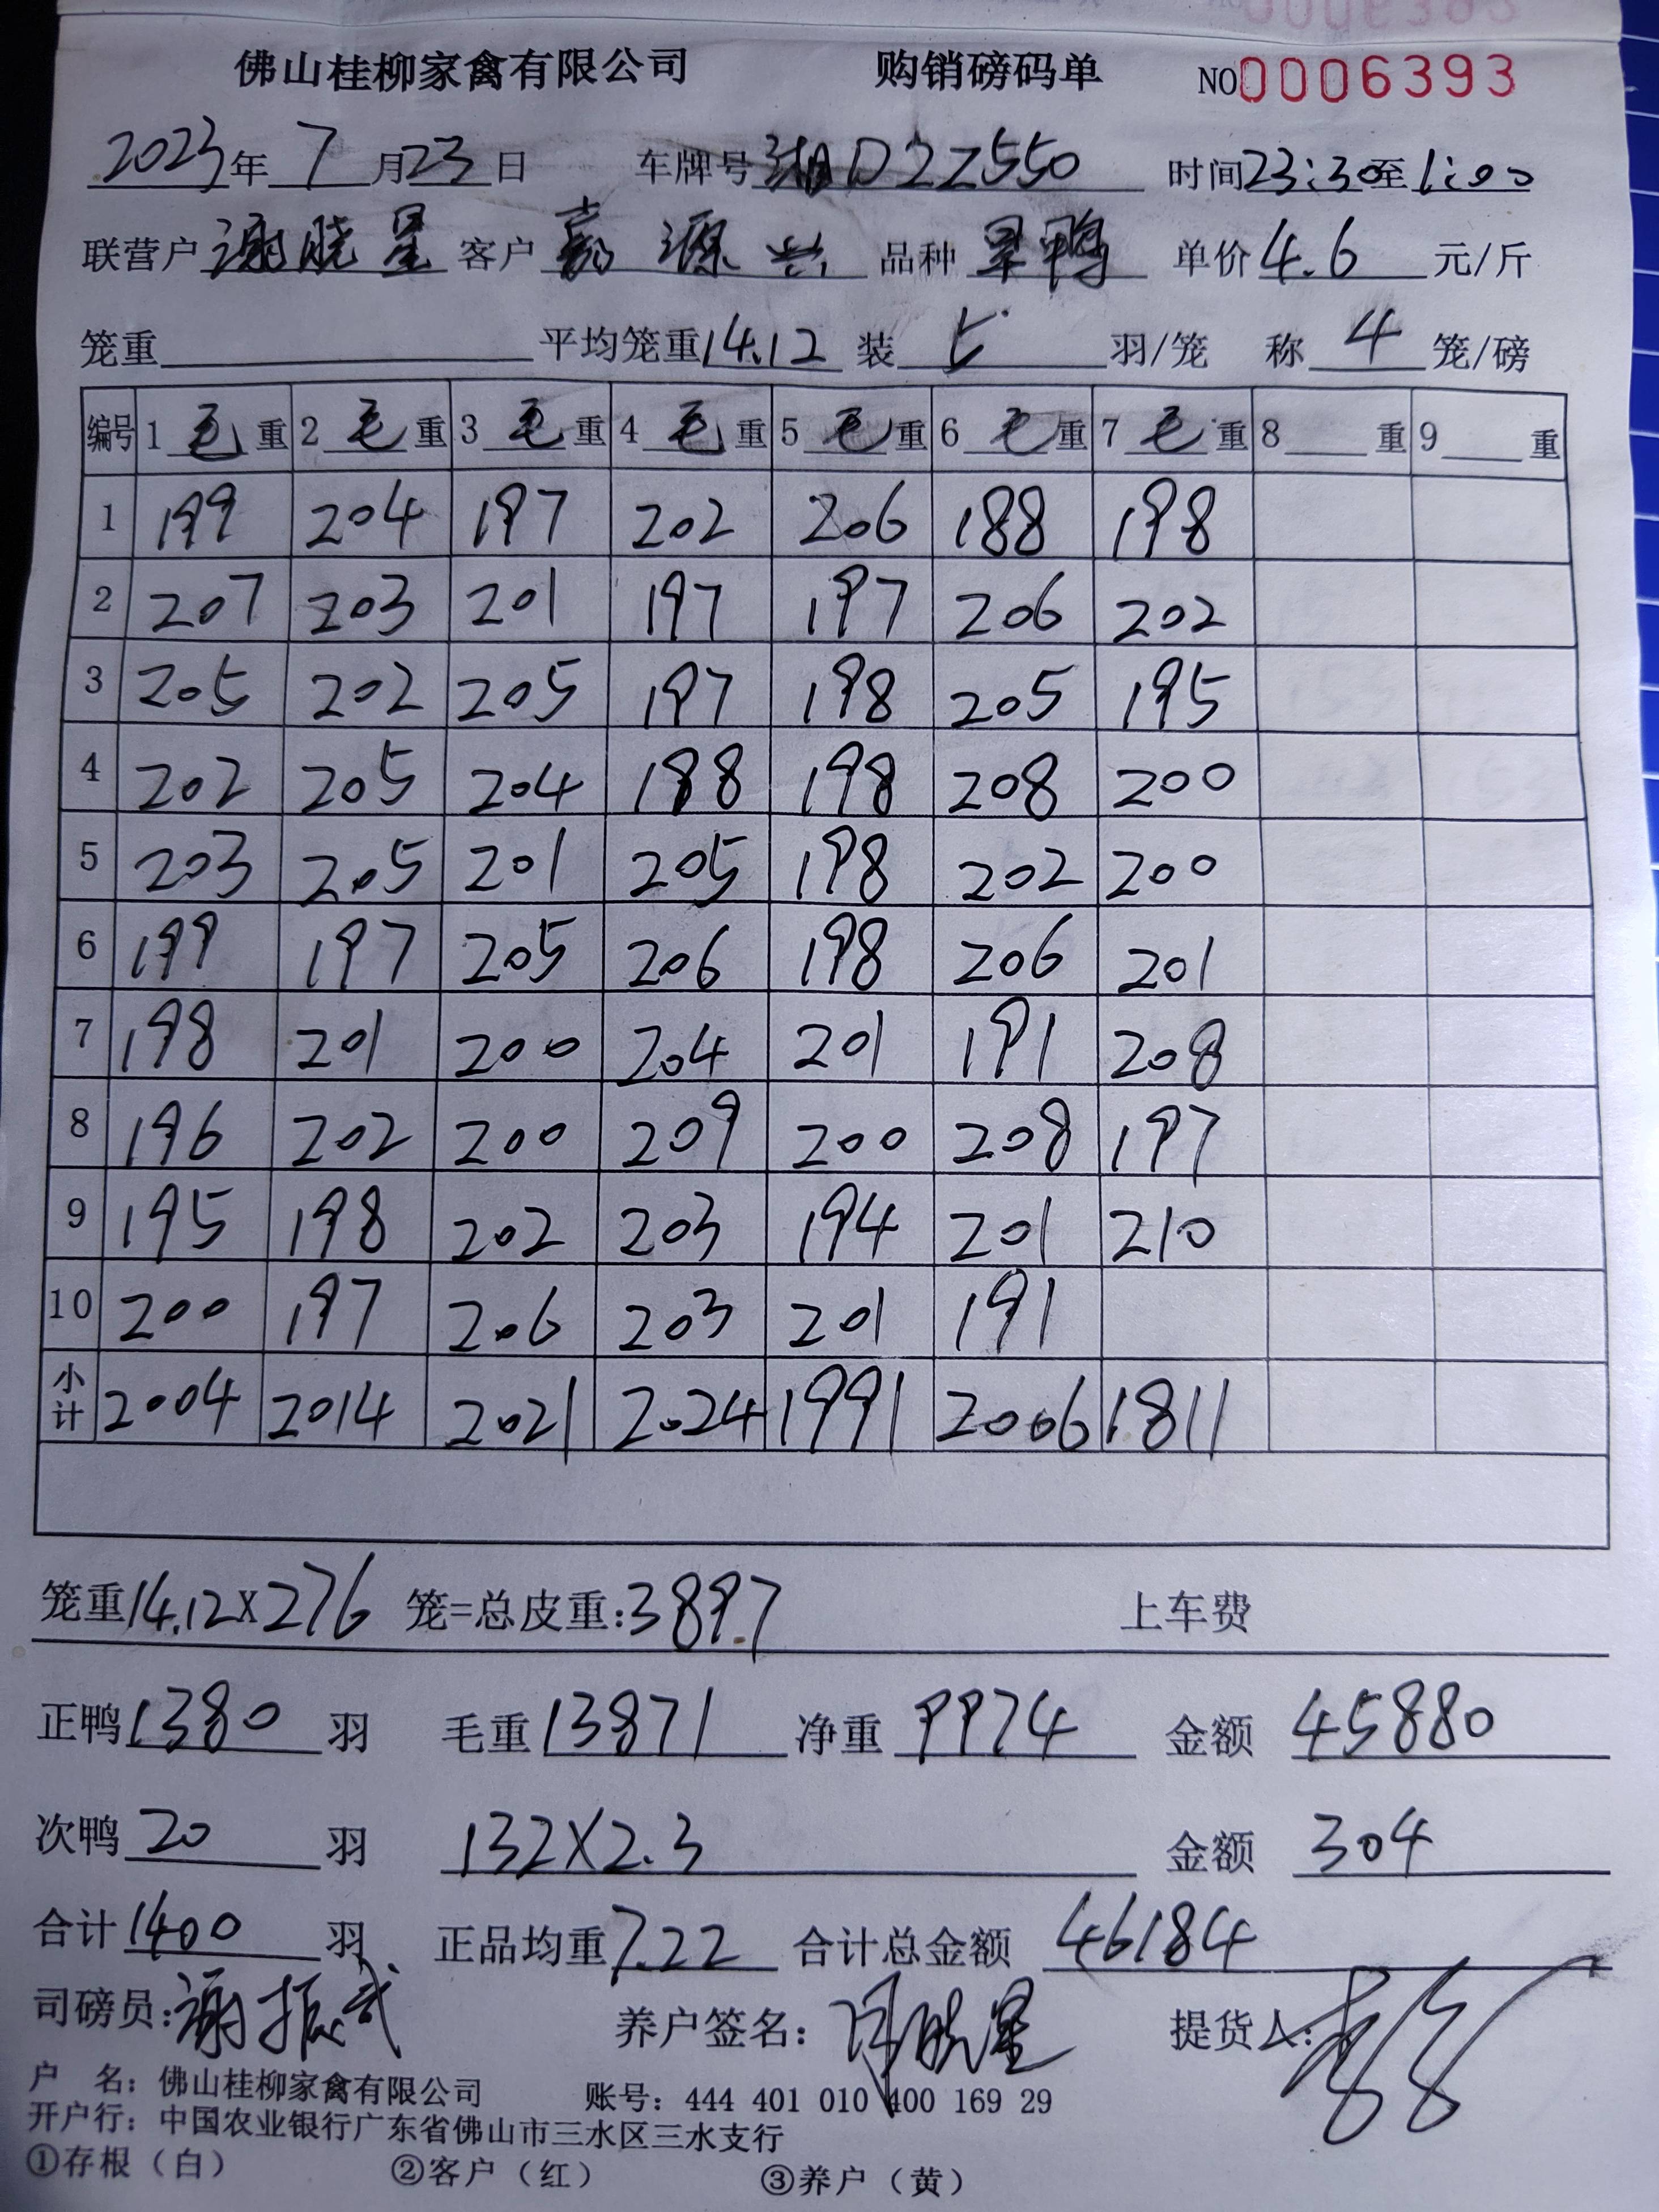 佛山桂柳家禽有限公司 购销磅码单 NO0006393
2023年7月23日 车牌号湘D2Z550 时间23:30至1:00
联营户谢晓星 客户 源 品种旱鸭 单价4.6元/斤
笼重 平均笼重14.12 装5羽/笼 称4笼/磅
编号 1毛重 2毛重 3毛重 4毛重 5毛重 6毛重 7毛重 8重 9重
1 199 204 197 202 206 188 198
2 207 203 201 197 197 206 202
3 205 202 205 197 198 205 195
4 202 205 204 188 198 208 200
5 203 205 201 205 198 202 200
6 199 197 205 206 198 206 201
7 198 201 200 204 201 191 208
8 196 202 200 209 200 208 197
9 195 198 202 203 194 201 210
10 200 197 206 203 201 191
小计 2004 2014 2021 2024 1991 2006 1811
笼重14.12X276 笼=总皮重:3897 上车费
正鸭1380羽 毛重13871 净重9974 金额45880
次鸭20羽 132X2.3 金额304
合计1400羽 正品均重7.22 合计总金额46184
司磅员:谢振武 养户签名:谢晓星 提货人:
户 名:佛山桂柳家禽有限公司 账号:444 401 010 400 169 29
开户行:中国农业银行广东省佛山市三水区三水支行
①存根(白) ②客户(红) ③养户(黄)